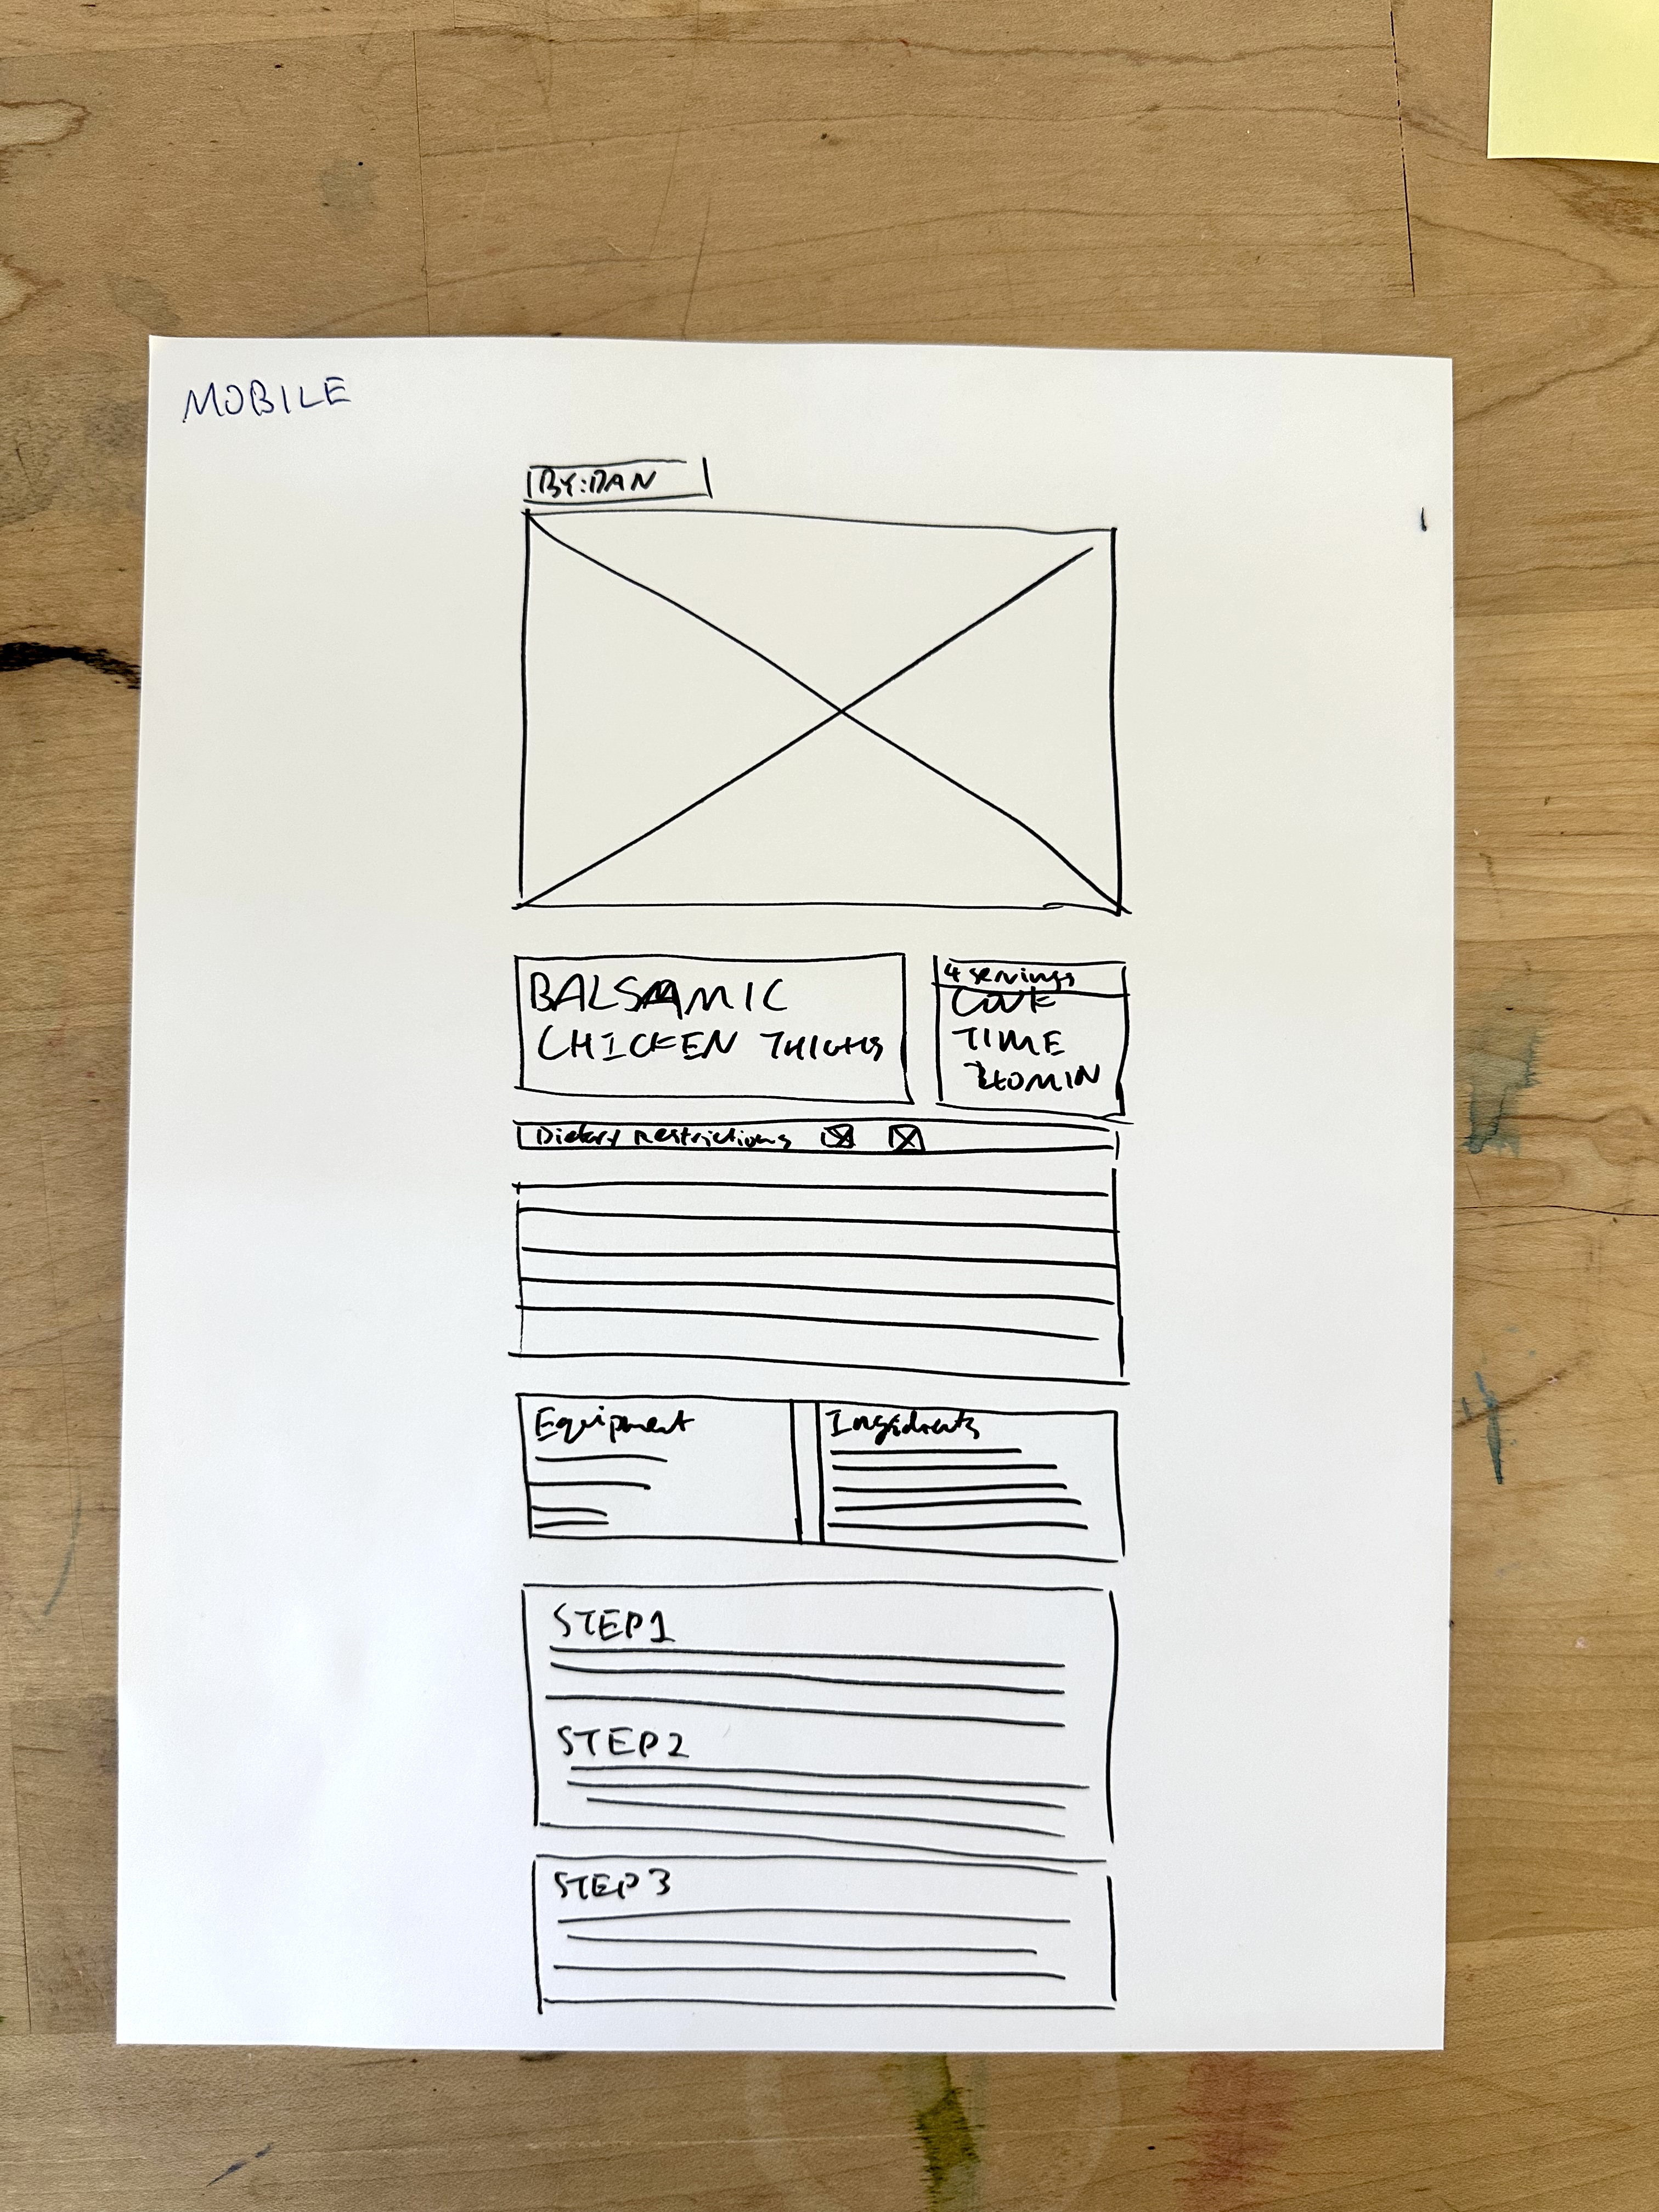 MOBILE
BY: DAN
BALSAMIC
CHICKEN THIGHS
4 servings
COOK
TIME
MIN
Dietary restrictions
Equipment
Ingridients
STEP 1
STEP 2
STEP 3